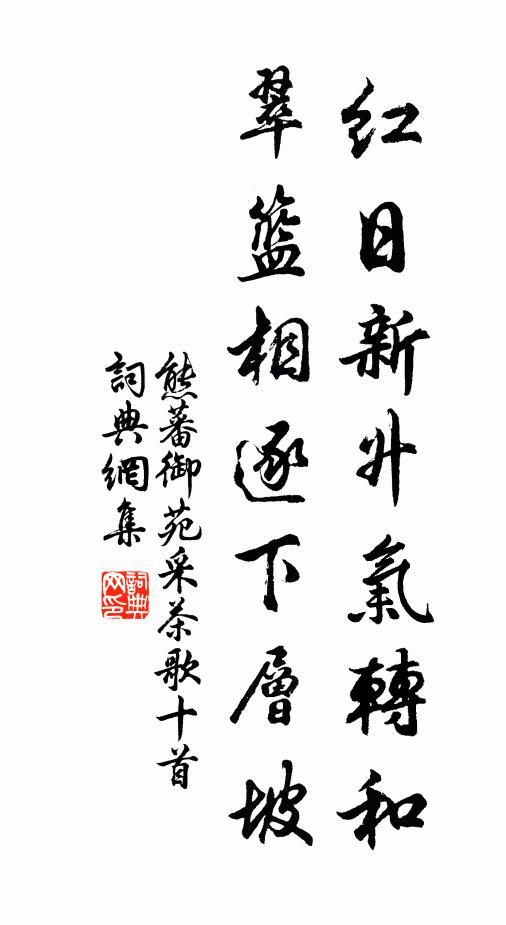 红日新升氣轉和
翠籃相逐下層坡
熊蕃御苑采茶歌十首
詞典網集
詞典網印